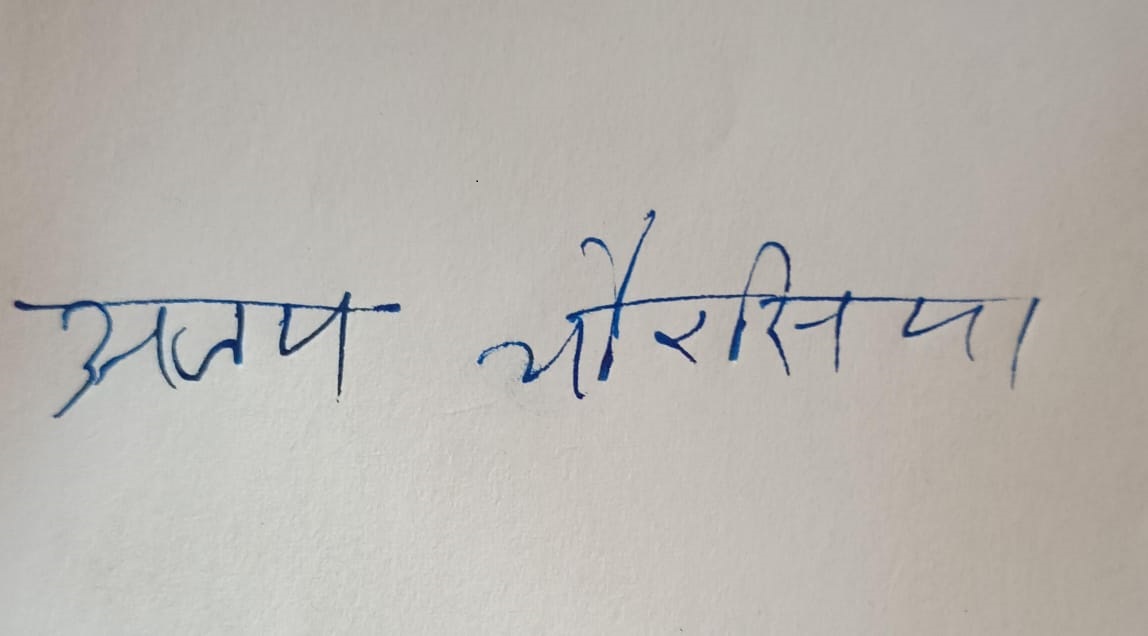 अजय चौरसिया